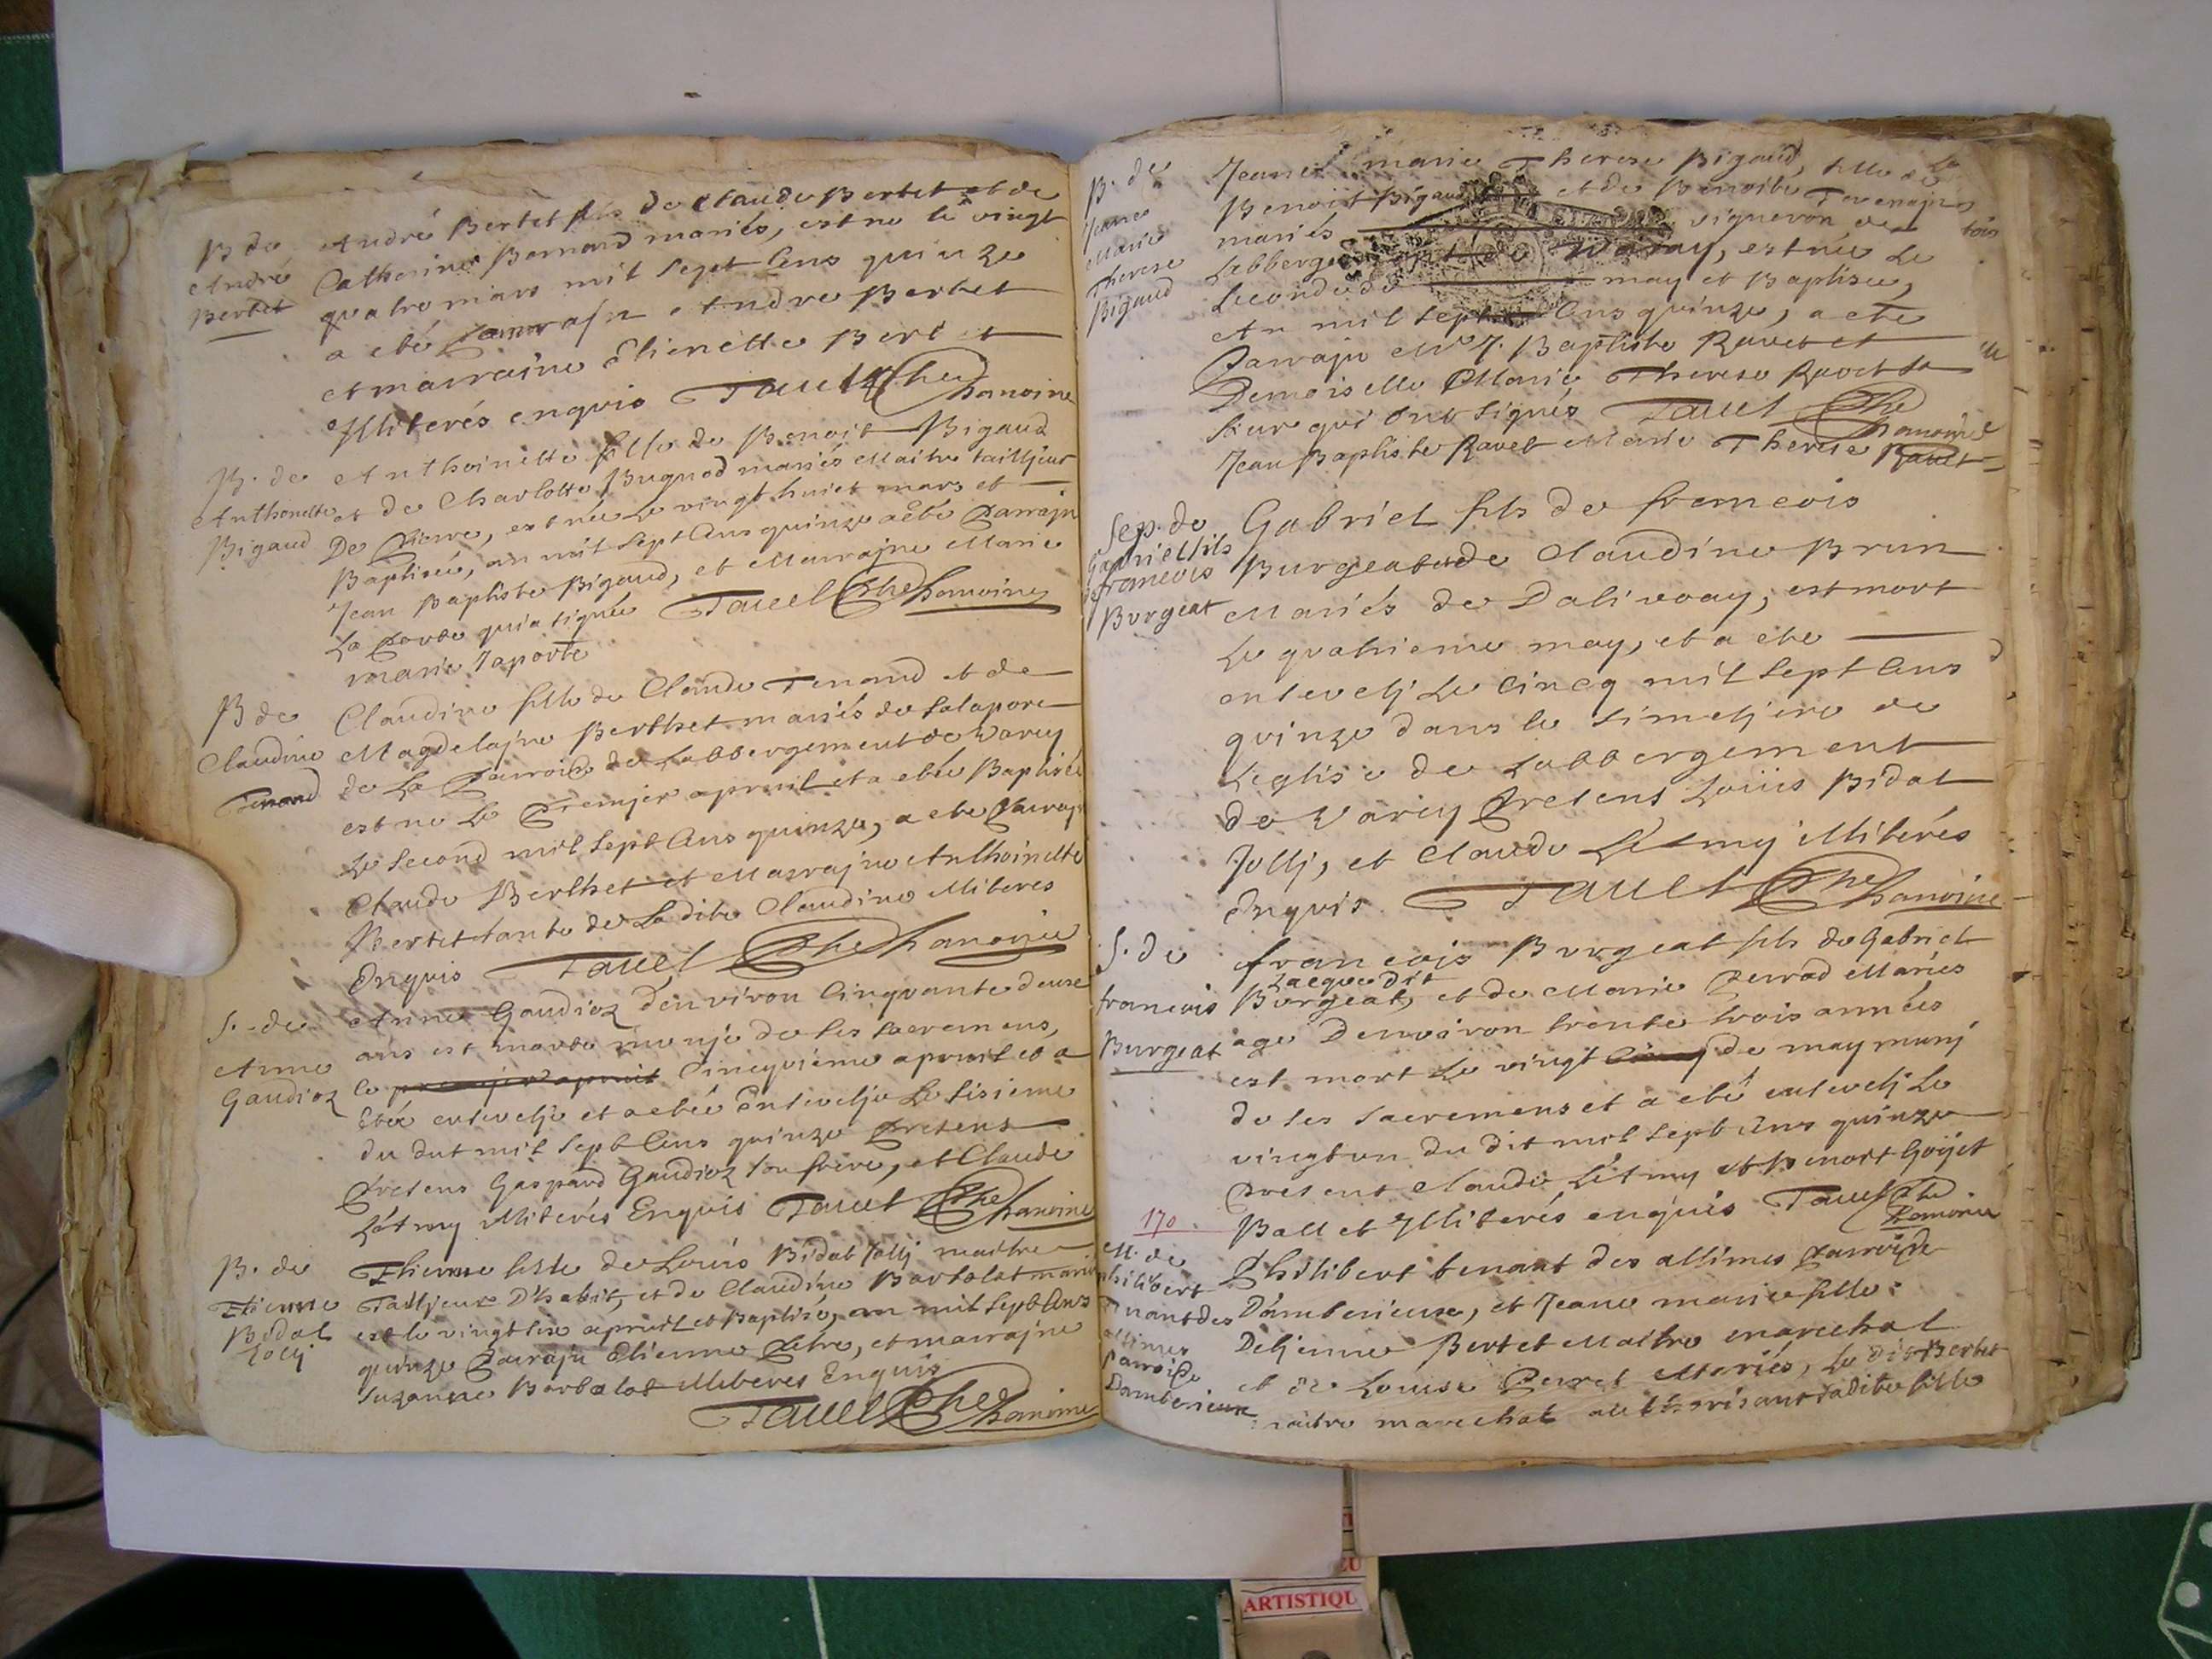 B de
André
Bertet
André Bertet fils de Claude Bertet et de
Catherine Bernard mariés, est né le vingt
quatre mars mil sept Cens quinze
a eté parrain André Bertet
et marraine Etienette Bertet
Illiterés enquis Tavel Phe
Chanoine
B. de
Anthoinette
Bigaud
Anthoinette fille de Benoit Bigaud
et de Charlotte Bugnod mariés Maitre tailljeur
De Pierre, est née Le vingt huict mars et
Baptisée, an mil sept Cens quinze a eté Parrajn
Jean Baptiste Bigaud, et Marrajne Marie
La porte qui a signée Tavel Phe Chanoine
marie laporte
B de
Claudine
Tenand
Claudine fille de Claude Tenand et de
Magdelajne Berthet mariés de
de La Parroisse de Labbergement de Varey
est né Le Premjer apvril et a etée Baptisée
Le second mil sept Cens quinze, a ete Parrajn
Claude Berthet et Marrajne Anthoinette
Bertet tante de La dite Claudine illiteres
Enquis Tavel Phe Chanoine
S. de
Anne
Gaudioz
Anne Gaudioz d'environ Cinquante deux
ans est morte munje de ses sacremens,
le Cincquieme apvril et a
Etée enseveljе et a etée Enseveljе Le sisieme
du dut mil sept Cens quinze Presens
Presens Gaspard Gaudioz son frere, et Claude
Létmy illiterés Enquis Tavel Phe
Chanoine
B. de
Etienne
Bidal
Jollj
Etienne fils de Louis Bidal Jollj maitre
Tailjeur D'habit, et de Claudine Barbolat mariés
est le vingt apvril et Baptisé, an mil sept Cens
quinze Parrajn Etienne, et marrajne
Suzanne Barbolat illiteres Enquis
Tavel Phe Chanoine
B. de
Jeane
Marie
Therese
Bigaud
Jeane marie Therese Bigaud, fille de
Benoit Bigaud et de Benoite
mariés vigneron de
Labbergement de Varay, est née Le
seconde de may et Baptisée,
An mil sept Cens quinze, a eté
Parrajn Mre J. Baptiste Ravet et
Demoiselle Marie Therese Ravet sa
seur qui ont signés Tavel Phe
Chanoine
Jean Baptiste Ravet Marie Therese Ravet
Sep. de
Gabriel fils
de francois
Burgeat
Gabriel fils de francois
Burgeat et de Claudine Brun
Mariés de Dalivoay, est mort
Le quatrieme may, et a ete
ensevelj Le Cincq mil sept Cens
quinze dans le simetjere de
L'eglise de Labbergement
de Varey Presens Louis Bidal
Jollj, et Claude Létmy illiterés
Enquis. Tavel Phe
Chanoine
S. de
francois
Burgeat
francois Burgeat fils de Gabriel
Burgeat, et de Marie Perrod Mariés
agé D'environ trente trois années
est mort Le vingt de may munj
de ses sacremens et a eté ensevelj Le
vingt un du dit mil sept Cens quinze
Present Claude Létmy et Benoit Goÿet
Ball et Illiterés enquis Tavel Phe
Chanoine
170
M. de
philibert
Tenant des
allimes
Parroisse
Damberieux
Philibert tenant des allimes parroisse
D'amberieux, et Jeane marie fille
D'etjenne Bertet Maitre marechal
et de Louise Perret Mariés, Le dit Bertet
maitre marechal authorisant sa dite fille
ARTISTIQU